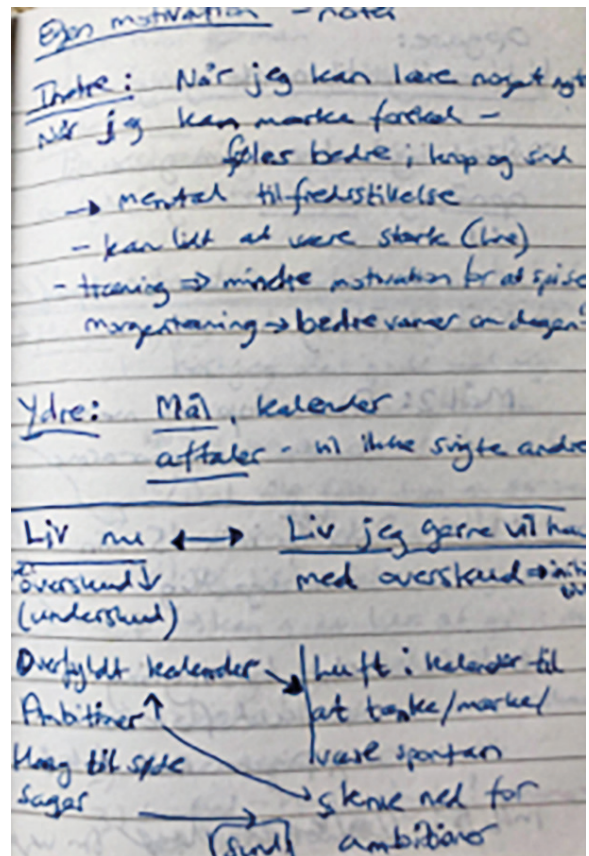 Egen motivation - noter
Indre: Når jeg kan lære noget nyt
Når jeg kan mærke forskel -
føles bedre i krop og sind
→ mental tilfredsstillelse
- kan lidt at være stærk (
- træning => mindre motivation for at spise
morgentræning → bedre vaner om dagen
Ydre: Mål, kalender
aftaler - vil ikke svigte andre
Liv nu ↔ Liv jeg gerne vil ha
overskud ↓ med overskud =>
(underskud)
Overfyldt kalender → Luft i kalender til
Ambitioner ↑ at tænke/mærke/
være spontan
Hang til søde
sager → skrue ned for
(sund) ambitioner